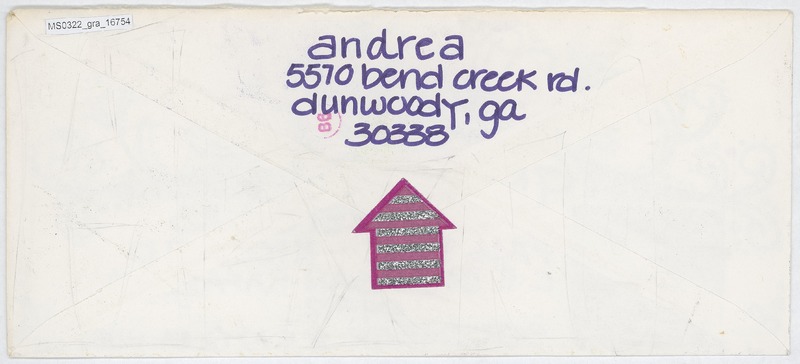 MS0322_gra_16754
andrea
5570 bend creek rd.
dunwoody, ga
B6
30338